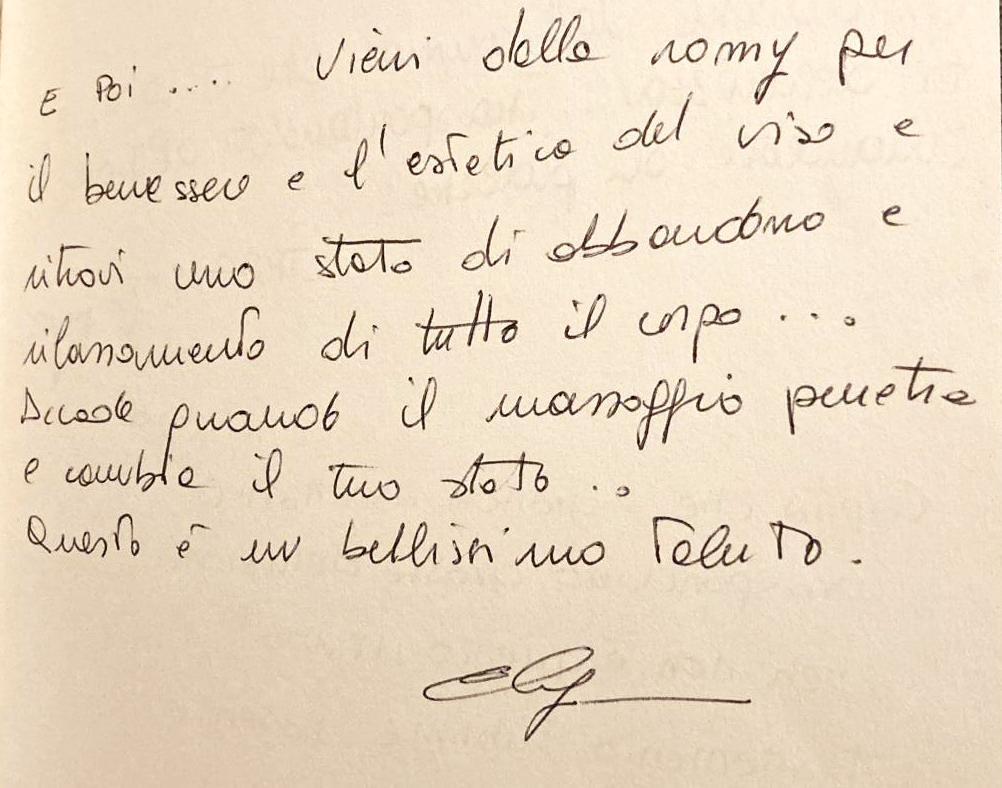 E poi .... vieni dalla romy per
il benessere e l'estetica del viso e
ritrovi uno stato di abbandono e
rilassamento di tutto il corpo ...
Accade quando il massaggio penetra
e cambia il tuo stato ..
Questo è un bellissimo Talento.